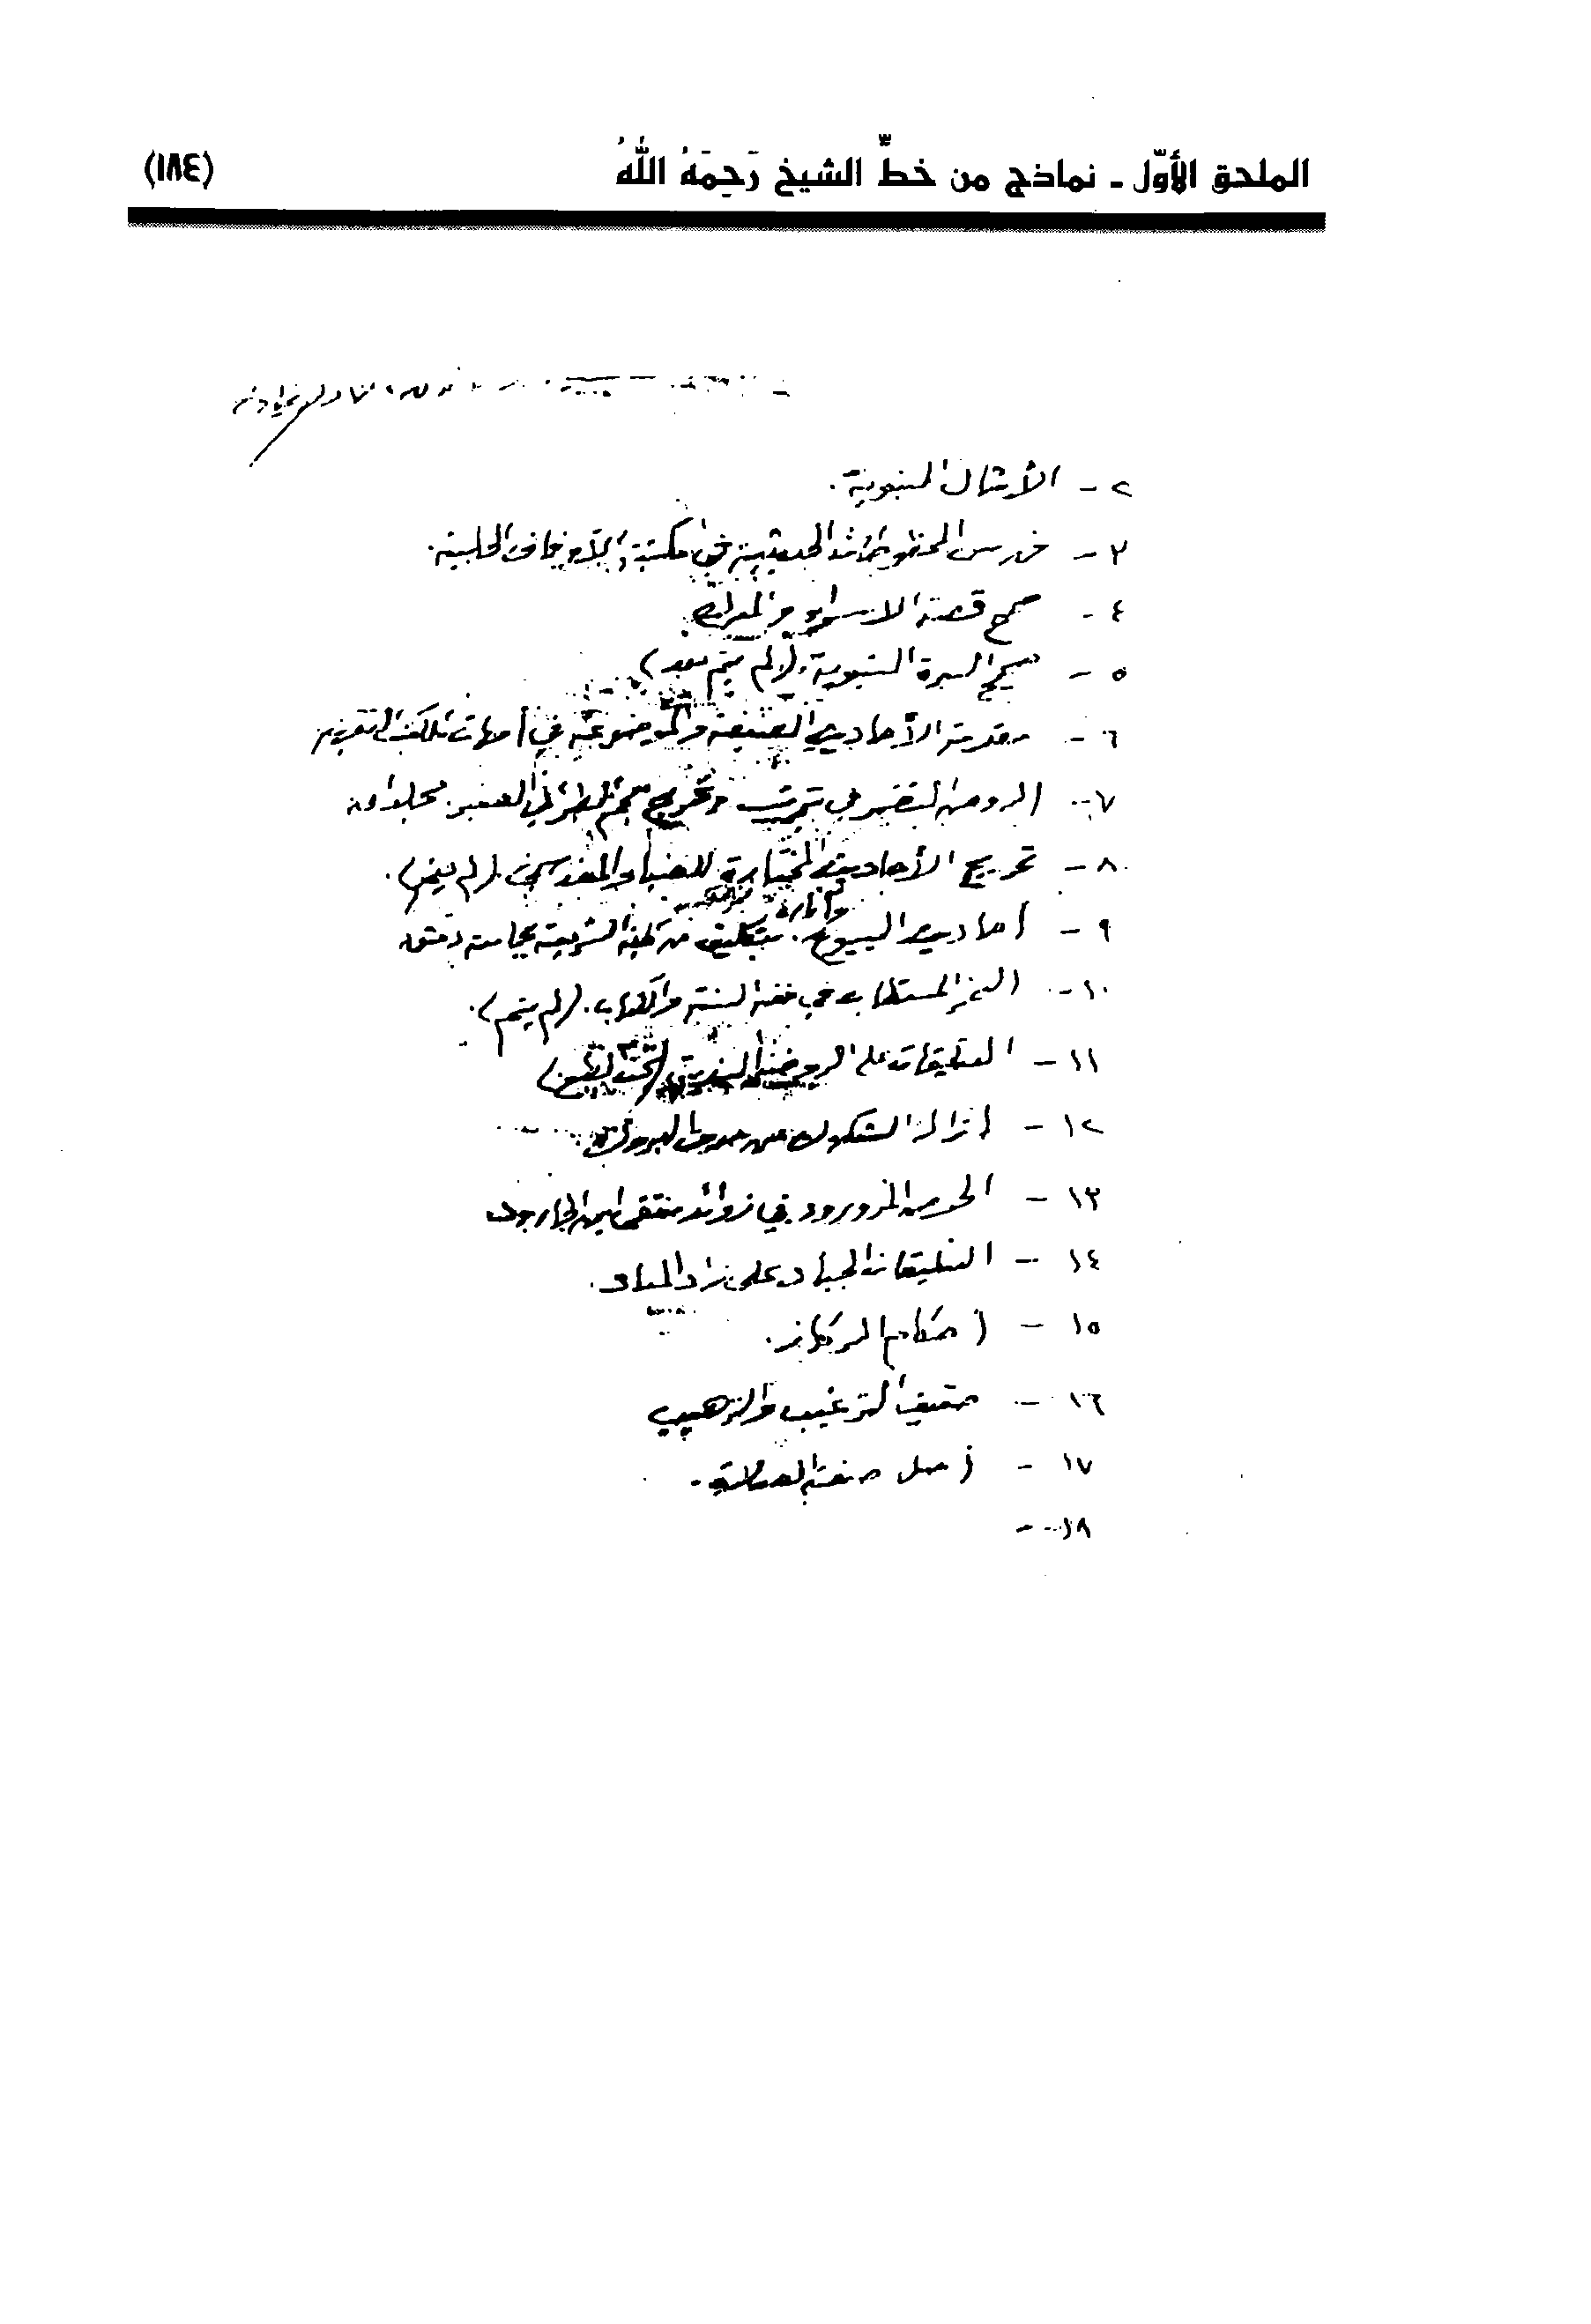 الملحق الأوّل - نماذج من خطِّ الشيخ رَحِمَهُ اللهُ (١٨٤)
٢ - الأمثال النبوية .
٣ - فهرس المخطوطات الحديثية في مكتبة الأوقاف الحلبية .
٤ - صحيح قصة الإسراء والمعراج .
٥ - صحيح السيرة النبوية . (لم يتم بعد)
٦ - مقدمة الأحاديث الضعيفة والموضوعة في أمهات الكتب الفقهية
٧ - الروض النضير في ترتيب وتخريج معجم الطبراني الصغير . مجلدان
٨ - تخريج الأحاديث المختارة للضياء المقدسي . (لم يتم) .
٩ - أحاديث البيوع وآثاره . بتكليف من لجنة الشريعة بجامعة دمشق
١٠ - الثمر المستطاب في فقه السنة والكتاب . (لم يتم) .
١١ - التعليقات على الروضة الندية (تحت الطبع)
١٢ - إزالة الشكوك عن حديث البروك
١٣ - الحوض المورود في زوائد منتقى ابن الجارود
١٤ - التعليقات الجياد على زاد المعاد .
١٥ - أحكام الركاز .
١٦ - ضعيف الترغيب والترهيب
١٧ - أصل صفة الصلاة .
١٨ -